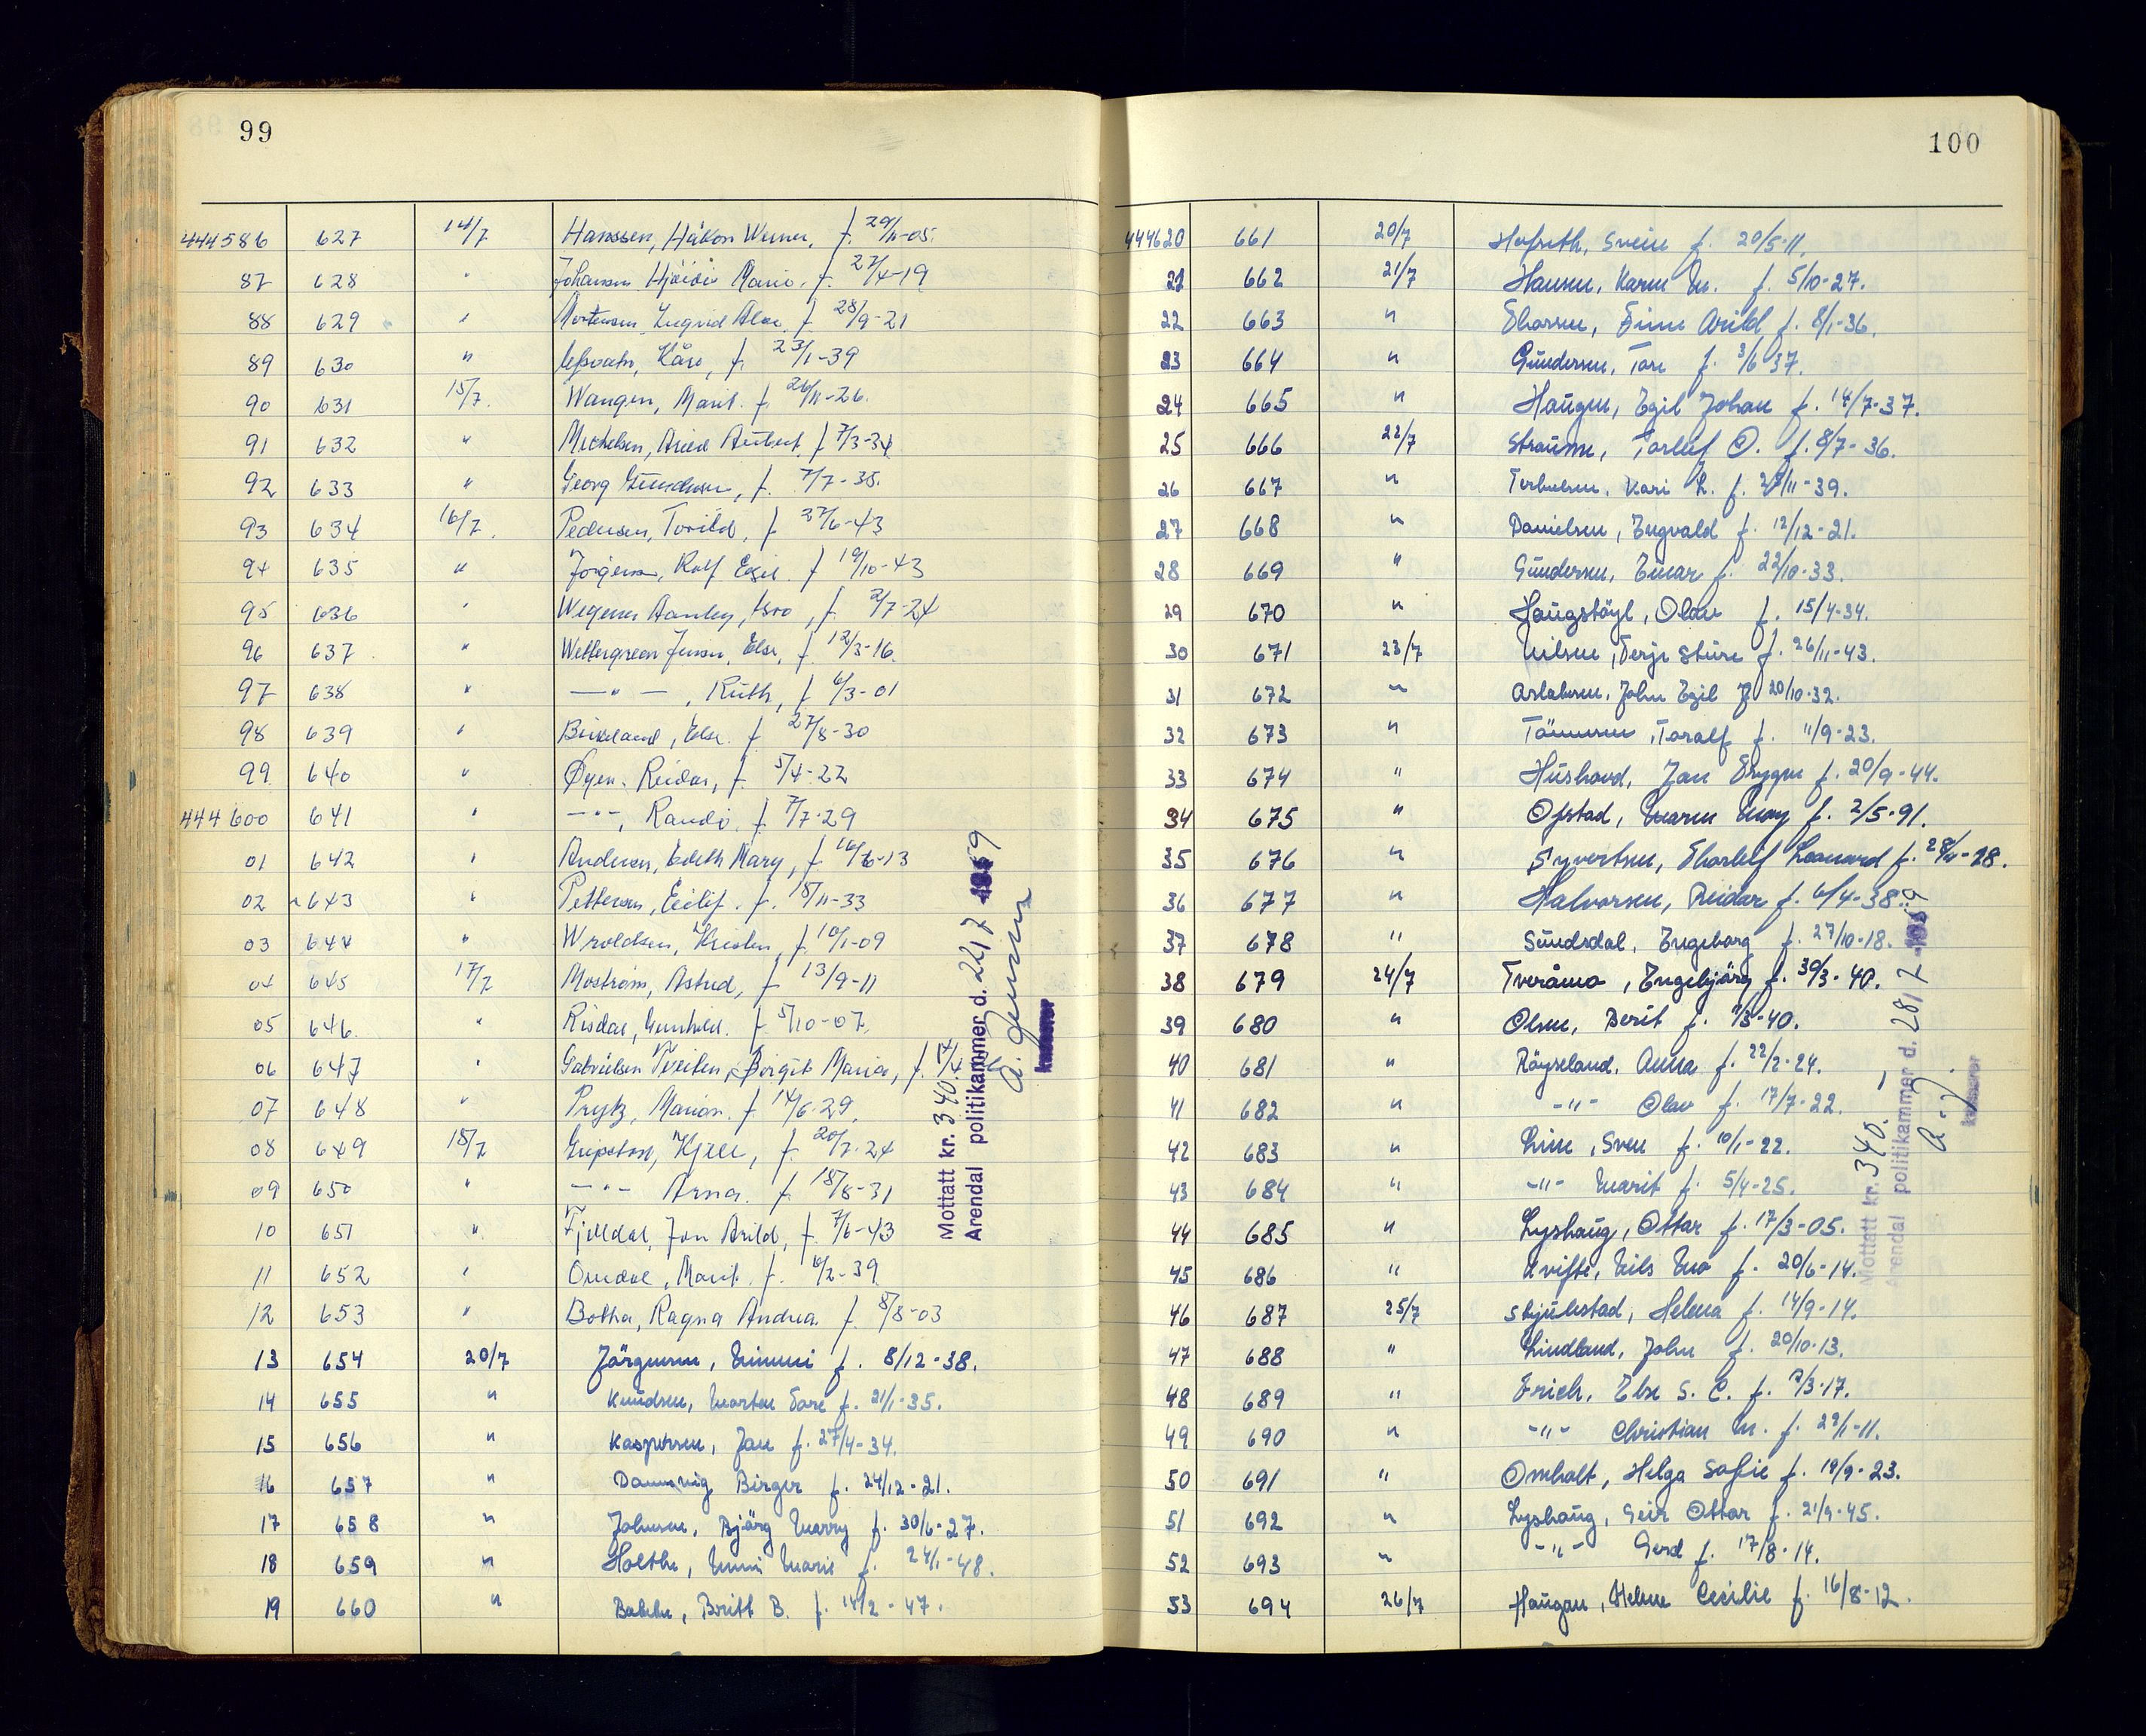 99
444586 627 14/7 Hanssen, Håkon Werner, f. 29/11-05.
87 628 " Johansen Hjördis Marie, f. 27/4-19
88 629 " Mortensen, Ingrid Alse, f 28/9-21
89 630 " Kåre, f. 23/1-39
90 631 15/7. Wangen, Marit. f. 26/11-26.
91 632 " Michelsen, Arild f 7/3-34
92 633 " Georg Gundersen, f. 7/7-35.
93 634 16/7. Pedersen, Torild, f 27/6-43
94 635 " Jörgensen, Rolf Egil. f 19/10-43
95 636 " Wegener Aanby, f. 2/7-24
96 637 " Wettergreen Jensen, Else, f. 12/3-16.
97 638 " —"—, Ruth, f 6/3-01
98 639 " Birkeland, Else. f 27/8-30
99 640 " Øyen. Reidar, f. 5/4-22
444600 641 " —"—, Randi. f. 7/7-29
01 642 " Andersen, Edith Mary, f 16/6-13
02 643 " Pettersen, Eilif. f. 15/11-33
03 644 " Wroldsen, f. 10/1-09
04 645 17/7 Moström, Astrid, f 13/9-11
05 646. " Risdal, Gunhild. f 5/10-07.
06 647 " Gabrielsen Tveiten, Birgit Maria, f.
07 648 " Prytz, Marion. f 14/6-29.
08 649 18/7 Gripeton, Kjell, f. 20/7-24
09 650 " —"— Arna. f. 18/8-31
10 651 " Fjelldal, Jon Arild, f. 7/6-43
11 652 " Omdal, Marit. f. 6/2-39
12 653 " Botha, Ragna Andrea f. 8/8-03
13 654 20/7 Jörgensen, Mimmi f. 8/12-38.
14 655 " Knudsen, Morten Tore f. 21/1-35.
15 656 " Kaspersen, Jan f. 27/4-34.
16 657 " Dannevig Birger f. 24/12-21.
17 658 " Johnsen, Bjärg Marry f. 30/6-27.
18 659 " Holthe, Unni Marie f. 24/1-48.
19 660 " Bakke, Britt B. f. 14/2-47.
Mottatt kr. 340.
Arendal politikammer d. 22/7 1959
A. Jensen
kasserer
100
444620 661 20/7 Hofseth, Svein f. 20/5-11.
21 662 21/7 Hansen, Karen M. f. 5/10-27.
22 663 " Finn Arild f. 8/1-36.
23 664 " Gundersen, Tore f. 3/6-37.
24 665 " Haugen, Egil Johan f. 14/7-37.
25 666 22/7 Straume, Torleif O. f. 8/7-36.
26 667 " Terkelsen, Kari L. f. 27/11-39.
27 668 " Danielsen, Ingvald f. 12/12-21.
28 669 " Gundersen, Einar f. 22/10-33.
29 670 " Haugstöyl, Olav f. 15/4-34.
30 671 23/7 Nilsen, Terje Sture f. 26/11-43.
31 672 " Aslaksen, John Egil f. 20/10-32.
32 673 " Tönnesen, Toralf f. 11/9-23.
33 674 " Hushovd, Jan Trygve f. 20/9-44.
34 675 " Ofstad, Maren May f. 2/5-91.
35 676 " Syvertsen, Thorleif Leonard f. 28/4-28.
36 677 " Halvorsen, Reidar f. 6/4-38.
37 678 " Sundsdal, Ingeborg f. 27/10-18.
38 679 24/7 Tveråmo, Ingebjörg f. 30/3-40.
39 680 " Olsen, Berit f. 7/3-40.
40 681 " Röyseland, Anna f. 22/2-24.
41 682 " -"- Olav f. 17/7-22.
42 683 " Lien, Sven f. 10/1-22.
43 684 " -"- Marit f. 5/4-25.
44 685 " Lyshaug, Ottar f. 17/3-05.
45 686 " Kvifte, Nils f. 20/6-14.
46 687 25/7 Skjulestad, Helena f. 14/9-14.
47 688 " Lindland, John f. 20/10-13.
48 689 " Erich, Else S. C. f. 2/3-17.
49 690 " -"- Christian M. f. 29/1-11.
50 691 " Omholt, Helga Sofie f. 19/9-23.
51 692 " Lyshaug, Geir Ottar f. 21/9-45.
52 693 " -"- Gerd f. 17/8-14.
53 694 26/7 Haugan, Helene Cecilie f. 16/8-12.
Mottatt kr. 340.-
Arendal politikammer d. 28/7 1959
A. J.
kasserer